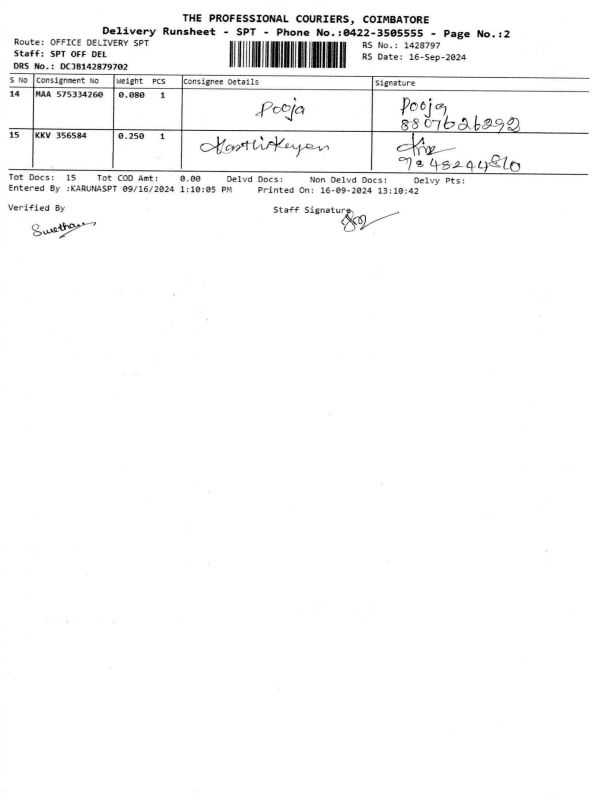 THE PROFESSIONAL COURIERS, COIMBATORE
Delivery Runsheet - SPT - Phone No.:0422-3505555 - Page No.:2
Route: OFFICE DELIVERY SPT
Staff: SPT OFF DEL
DRS No.: DCJB142879702
RS No.: 1428797
RS Date: 16-Sep-2024
S No Consignment No Weight PCS Consignee Details Signature
14 MAA 575334260 0.080 1 Pooja Pooja
8807626292
15 KKV 356584 0.250 1 Karthikeyan
Tot Docs: 15 Tot COD Amt: 0.00 Delvd Docs: Non Delvd Docs: Delvy Pts:
Entered By :KARUNASPT 09/16/2024 1:10:05 PM Printed On: 16-09-2024 13:10:42
Verified By Staff Signature